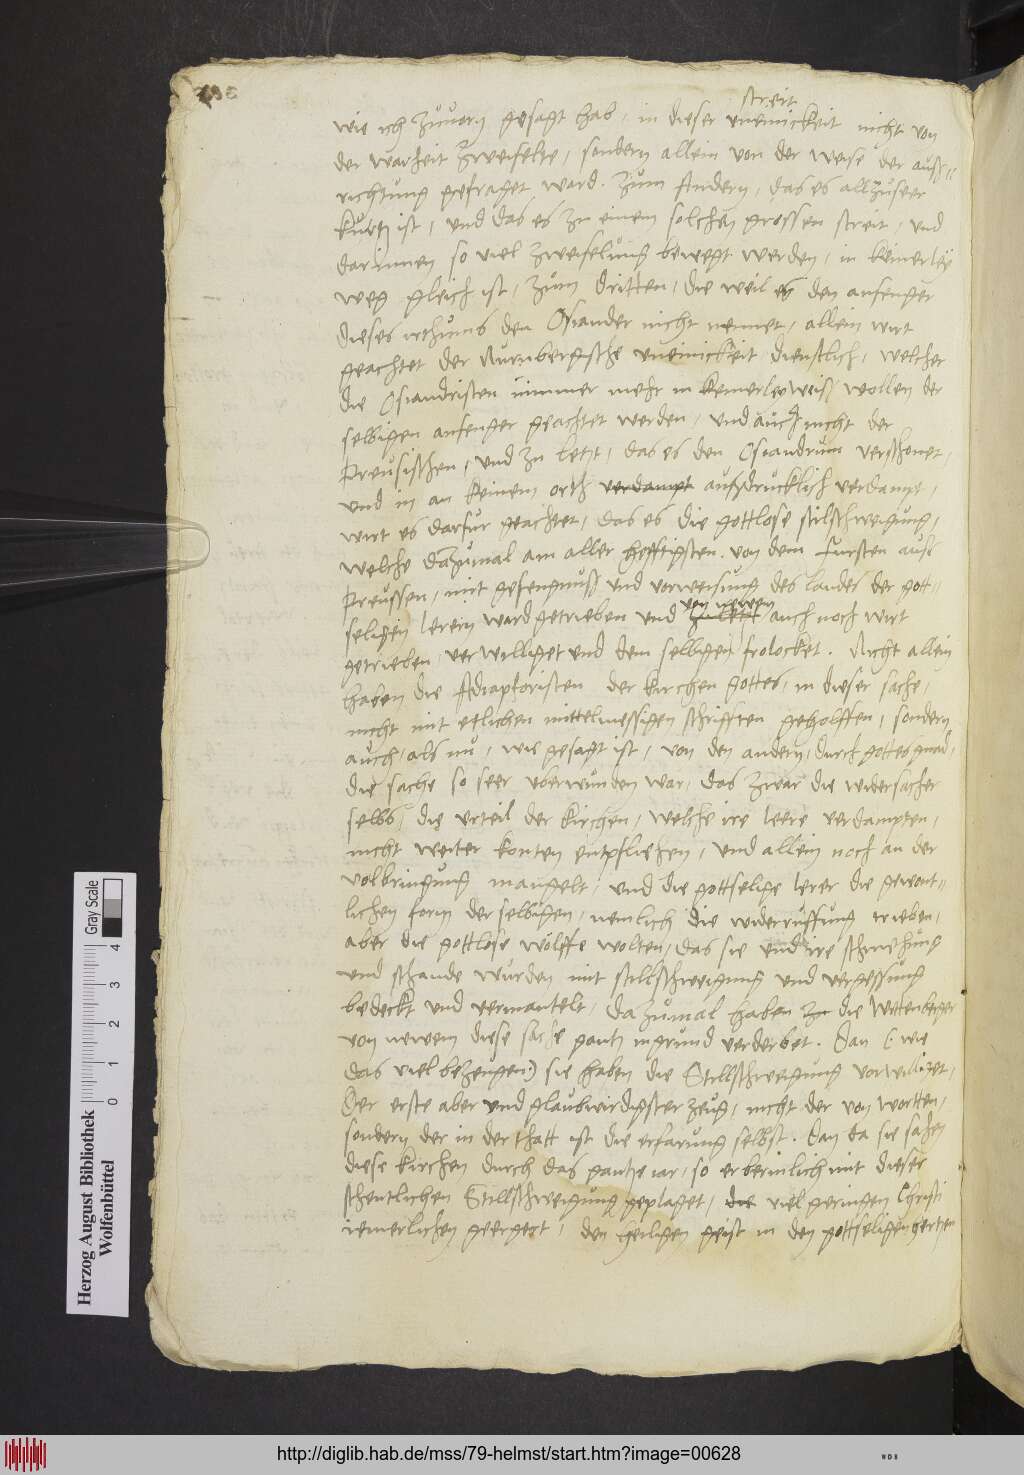 streit
wie ich zuuorn gesagt hab, in dieser uneinickeit nicht von
der warheit zweifelte, sondern allein von der weise der auß-
richtung gefraget ward. Zum Andern, das es allzuseer
kurtz ist, und das es zu einem solchen grossen streit, und
darinnen so viel zweifelung bewegt werden, in keinerley
weg gleich ist, zum dritten, die weil es den anfenger
dieses irthums den Osiander nicht nennet, allein wirt
geachtet der Nurnbergische uneinickeit dienstlich, welcher
die Osiandristen nimmer mehr in keinerley weiß wollen der
selbigen anfenger geachtet werden, und auch nicht der
Preusischen, und zu letzt, das es den Osiandrum verschonet,
und in an keinem orth verdampt ausdrucklich verdampt,
wirt es darfur geachtet, das es die gottlose stilschweigung,
welche dazumal am aller hefftigsten von dem Fursten auss
Preussen, mit gefengnuß und vorweisung des landes der gott-
von newen
seligen lerern ward getrieben und zuletzt auch noch wirt
getrieben, verwilliget und dem selbigen frolocket. Nicht allein
haben die Adiaphoristen der kirchen gottes, in dieser sache,
nicht mit etlichen mittelmessigen schrifften geholffen, sondern
auch, als nu, wie gesagt ist, von den andern, durch gottes gnad,
die sache so seer uberwunden war, das zwar die widersacher
selbs, die urteil der kirchen, welche ire leere verdampten,
nicht weiter konten entpfliehen, und allein noch an der
volbringung mangelt, und die gottselige lerer die gewont-
lichen form der selbigen, nemlich die widerruffung trieben,
aber die gottlose wölffe wolten, das sie und ire schmehung
und schande wurden mit stillschweigung und vergessung
bedeckt und vermantelt, da zumal haben zu die Wittenberger
von newem diese sache gantz in grund verderbet. Dan (wie
das viel bezeugen) sie haben die Stillschweigung vorwilliget,
Der erste aber und glaubwirdigster zeug, nicht der von wortten,
sondern der in der thatt ist die erfarung selbst. Dan da sie sahen
diese kirchen durch das gantze iar, so erbermlich mit dieser
schentlichen Stillschweigung geplaget, die viel geringen Christi
iemerlichen geergert, den heiligen geist in den gottseligen hertzen
Herzog August Bibliothek
Wolfenbüttel
0 1 2 3 4
Gray Scale
http://diglib.hab.de/mss/79-helmst/start.htm?image=00628